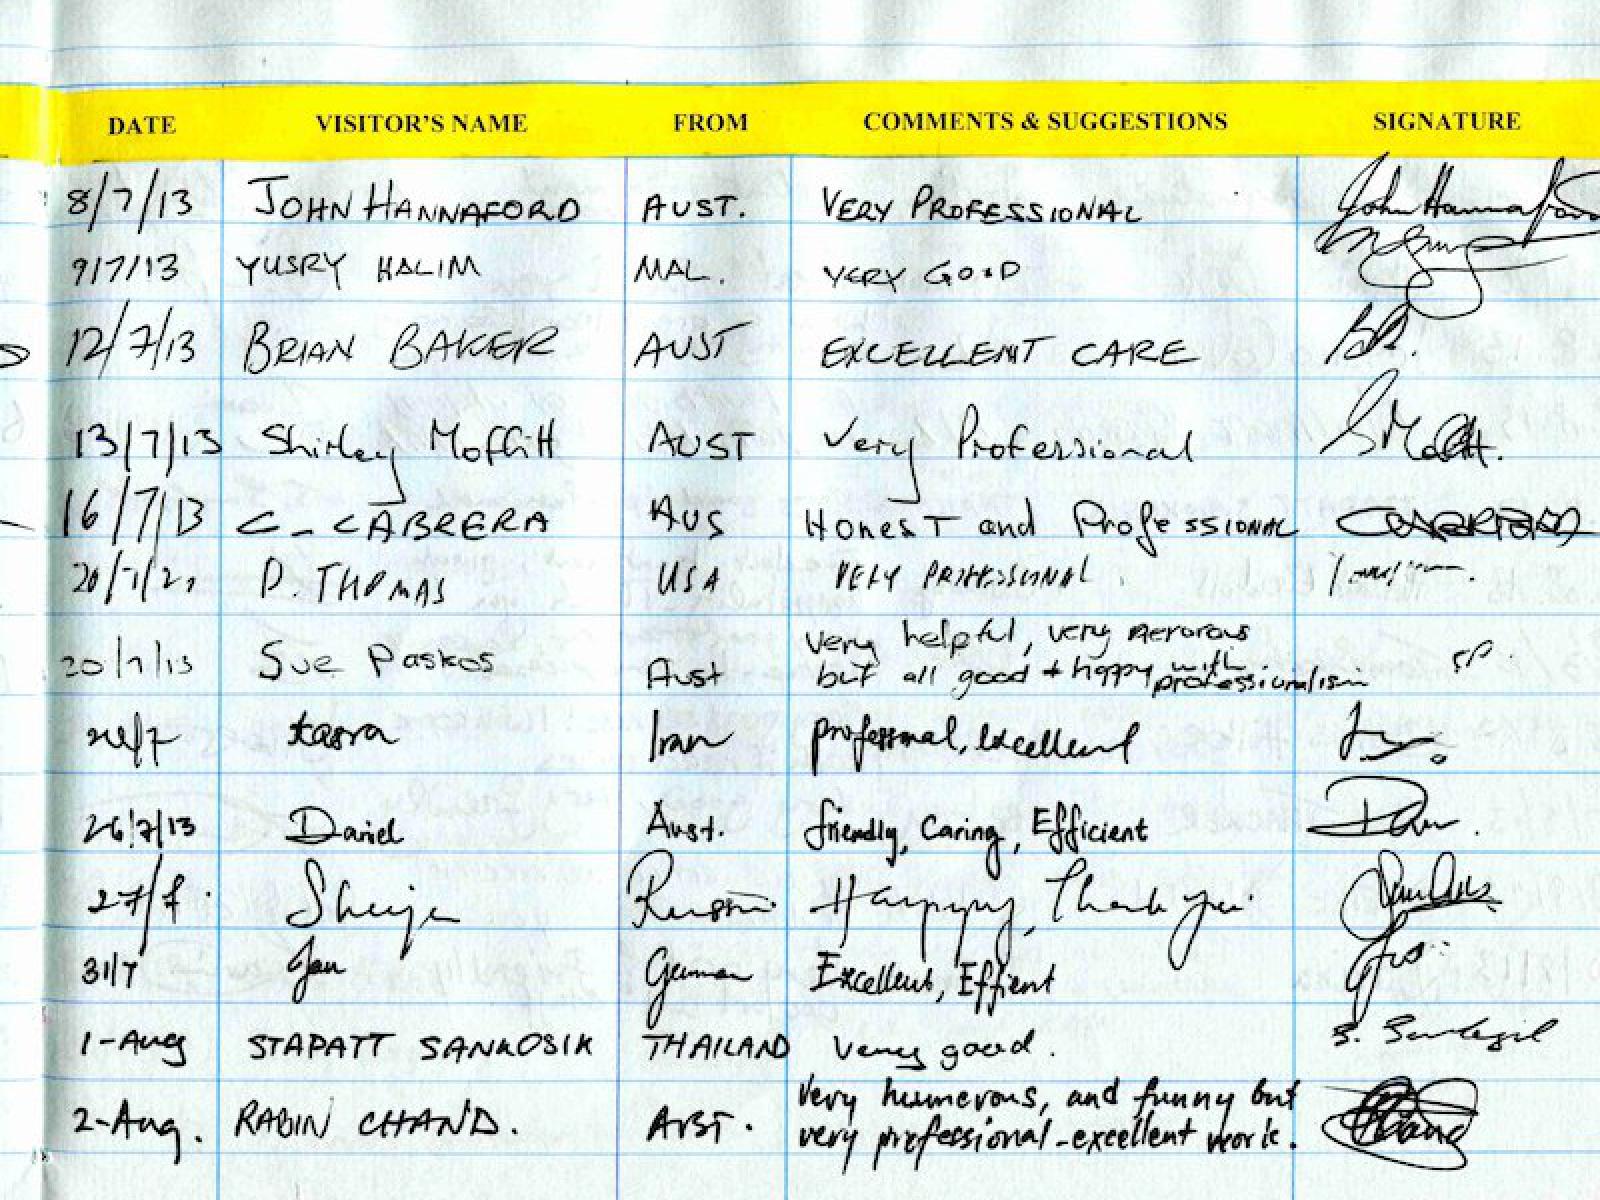 DATE VISITOR'S NAME FROM COMMENTS & SUGGESTIONS SIGNATURE
8/7/13 JOHN HANNAFORD AUST. VERY PROFESSIONAL John Hannaford
9/7/13 YUSRY HALIM MAL. VERY GOOD
12/7/13 BRIAN BAKER AUST EXCELLENT CARE
13/7/13 Shirley Moffitt AUST Very Professional
16/7/13 C-CABRERA AUS HONEST and Professional
D. THOMAS USA VERY PROFESSIONAL
20/7/13 Sue Paskos Aust very helpful, very
but all good + happy with professionalism SP.
Iran professnal, excellent
26/7/13 Daniel Aust. friendly, Caring, Efficient
27/7. Thank you.
31/7 Jan German Excellent, Effient
1-Aug STAPATT SANKOSIK THAILAND very good.
2-Aug. RABIN CHAND. AUST. very humerous, and funny but
very professional-excellent work.